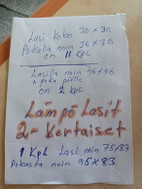 Lasi Koko 30x30
Paikalla noin 36x36
on 11 KPL
Lasilla noin 46x46
+ puu pielle
on 2 KPL
Lämpö Lasit
2- Kertaiset
1 KPL Lasi noin 75x87
Paikasta noin 95x83